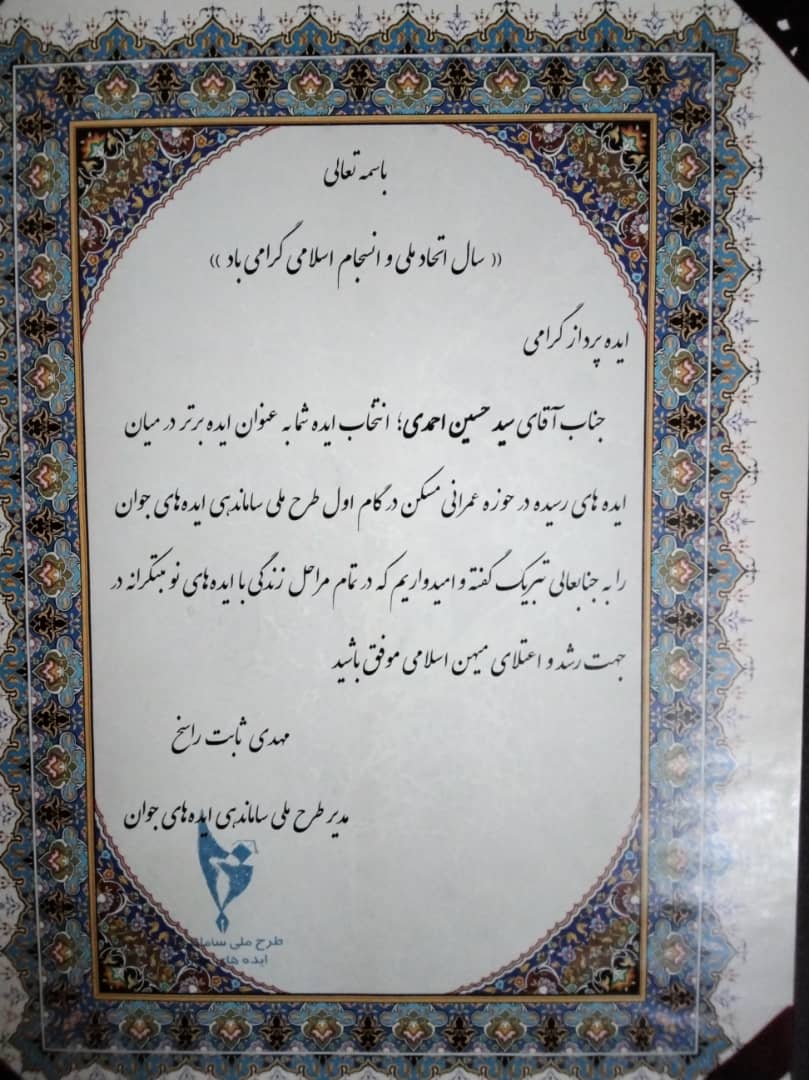 باسمه تعالی
(( سال اتحاد ملی و انسجام اسلامی گرامی باد ))
ایده پرداز گرامی
جناب آقای سید حسین احمدی؛ انتخاب ایده شما به عنوان ایده برتر در میان
ایده های رسیده در حوزه عمرانی مسکن در گام اول طرح ملی ساماندهی ایده های جوان
را به جنابعالی تبریک گفته و امیدواریم که در تمام مراحل زندگی با ایده های نو مبتکرانه در
جهت رشد و اعتلای میهن اسلامی موفق باشید
مهدی ثابت راسخ
مدیر طرح ملی ساماندهی ایده های جوان
طرح ملی
ایده های